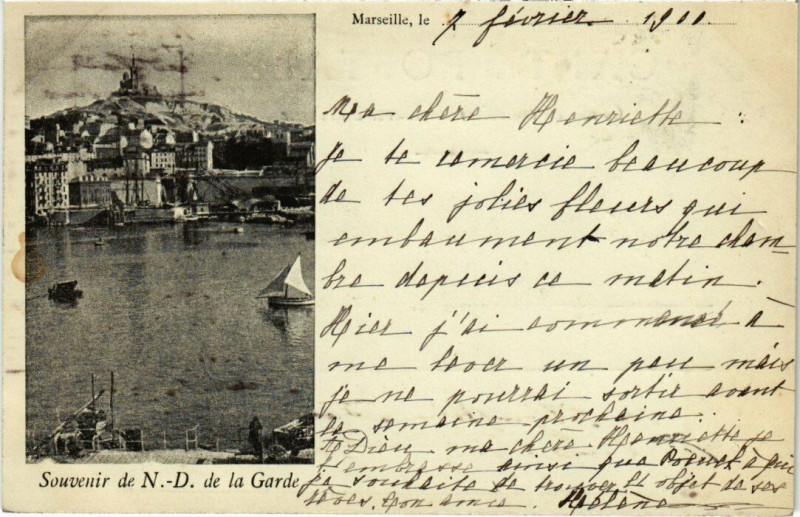 Marseille, le 7 février 1900
Ma chère Henriette :
Je te remercie beaucoup
de tes jolies fleurs qui
embaument notre cham-
bre depuis ce matin.
Hier j'ai commencé à
me lever un peu mais
je ne pourrai sortir avant
la semaine prochaine.
Dieu, ma chère Henriette je
t'embrasse ainsi que à qui
je souhaite de trouver l'objet de ses
rêves. Ton amie. Hélène
Souvenir de N.-D. de la Garde